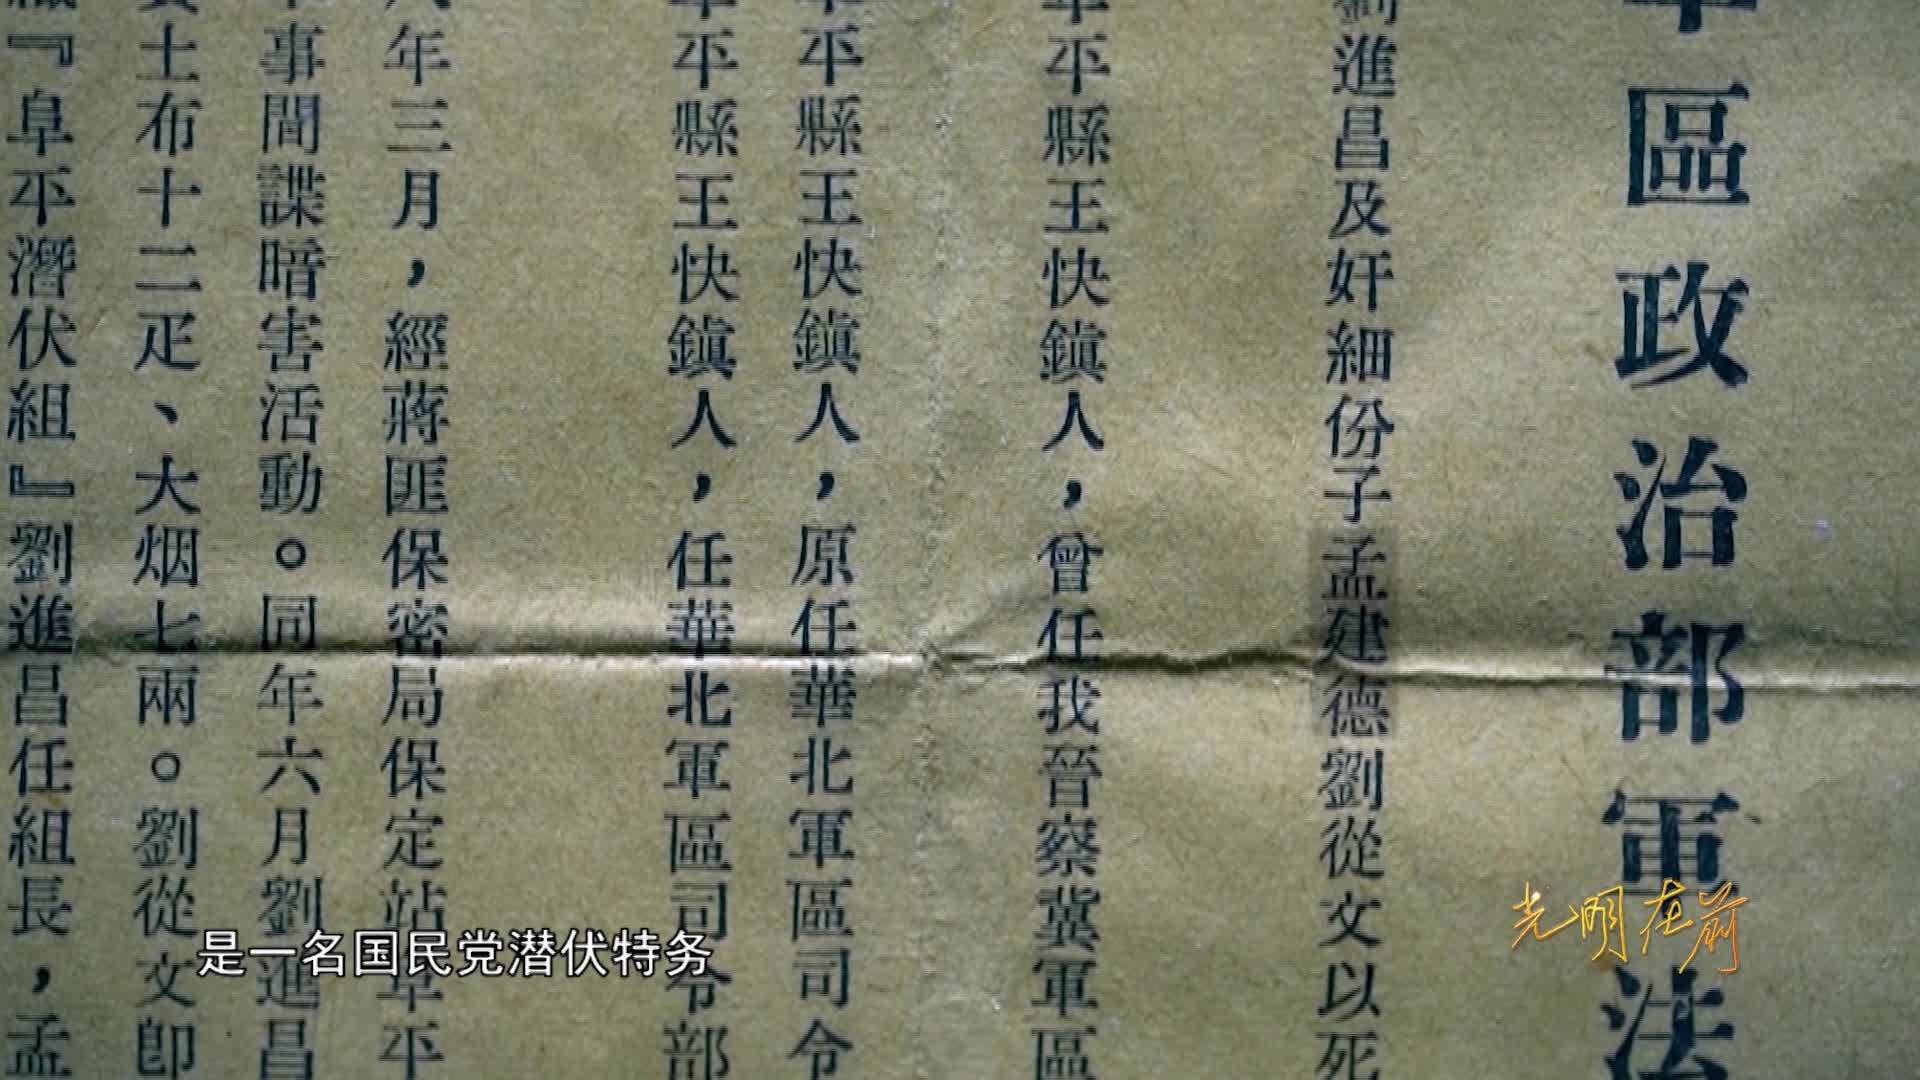 區政治部軍法
進昌及奸細份子孟建德劉從文以死
平縣王快鎭人，曾任我晉察冀軍區
平縣王快鎭人，原任華北軍區司令
平縣王快鎭人，任華北軍區司令部
年三月，經蔣匪保密局保定站阜平
事間諜暗害活動。同年六月劉進昌
土布十二疋、大烟七兩。劉從文卽
『阜平潛伏組』劉進昌任組長，孟
是一名国民党潜伏特务
光明在前